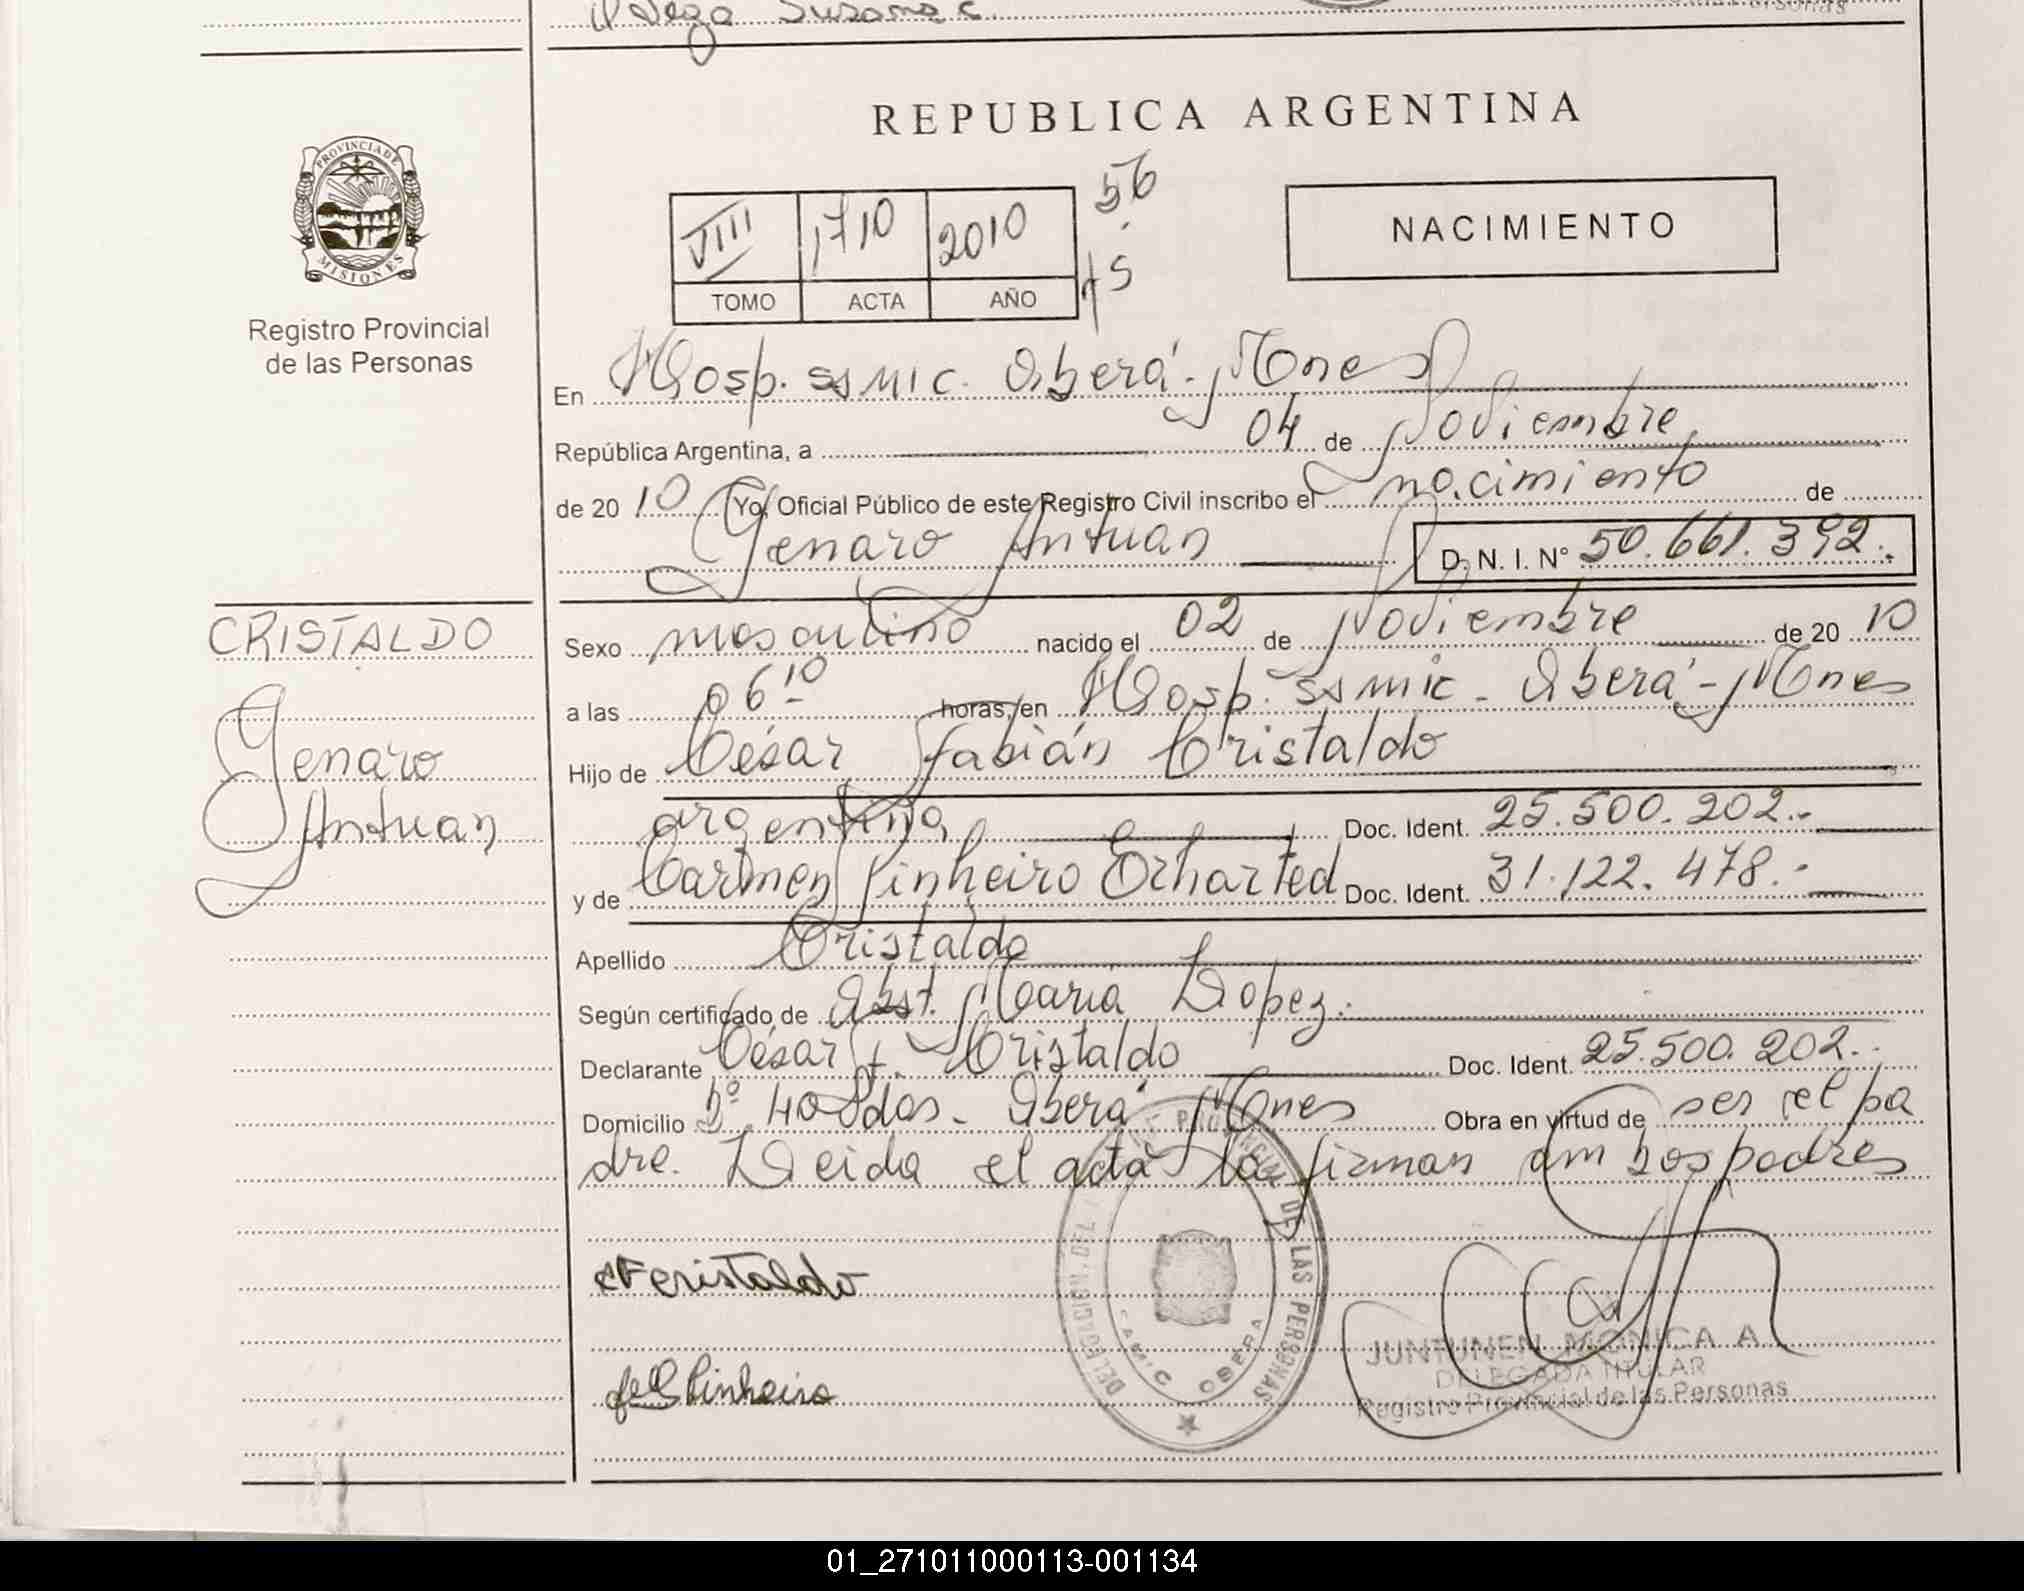 Vega Susana C.
REPUBLICA ARGENTINA
PROVINCIA DE
MISIONES
Registro Provincial
de las Personas
VIII 1710 2010
TOMO ACTA AÑO
56
NACIMIENTO
En Hosp. SSMIC. Oberá - Mnes
República Argentina, a 04 de Noviembre
de 2010 Yo, Oficial Público de este Registro Civil inscribo el nacimiento de
Genaro Antuan D. N. I. N° 50.661.392.
CRISTALDO
Genaro
Antuan
Sexo masculino nacido el 02 de Noviembre de 2010
a las 06 10 horas, en Hosp. SSMIC - Oberá - Mnes
Hijo de César Fabián Cristaldo
argentina Doc. Ident. 25.500.202.-
y de Carmen Pinheiro Erharted Doc. Ident. 31.122.478.-
Apellido Cristaldo
Según certificado de Obst. María Lopez.
Declarante César F. Cristaldo Doc. Ident. 25.500.202.-
Domicilio Bº 40 Vdas - Oberá Mnes Obra en virtud de ser el pa
dre. Leida el acta la firman ambos padres
CF Cristaldo
Pinheiro
DELEGACION DEL REG. PROVINCIAL DE LAS PERSONAS
SAMIC OBERA
JUNTUNEN MONICA A.
DELEGADA TITULAR
Registro Provincial de las Personas
01_271011000113-001134